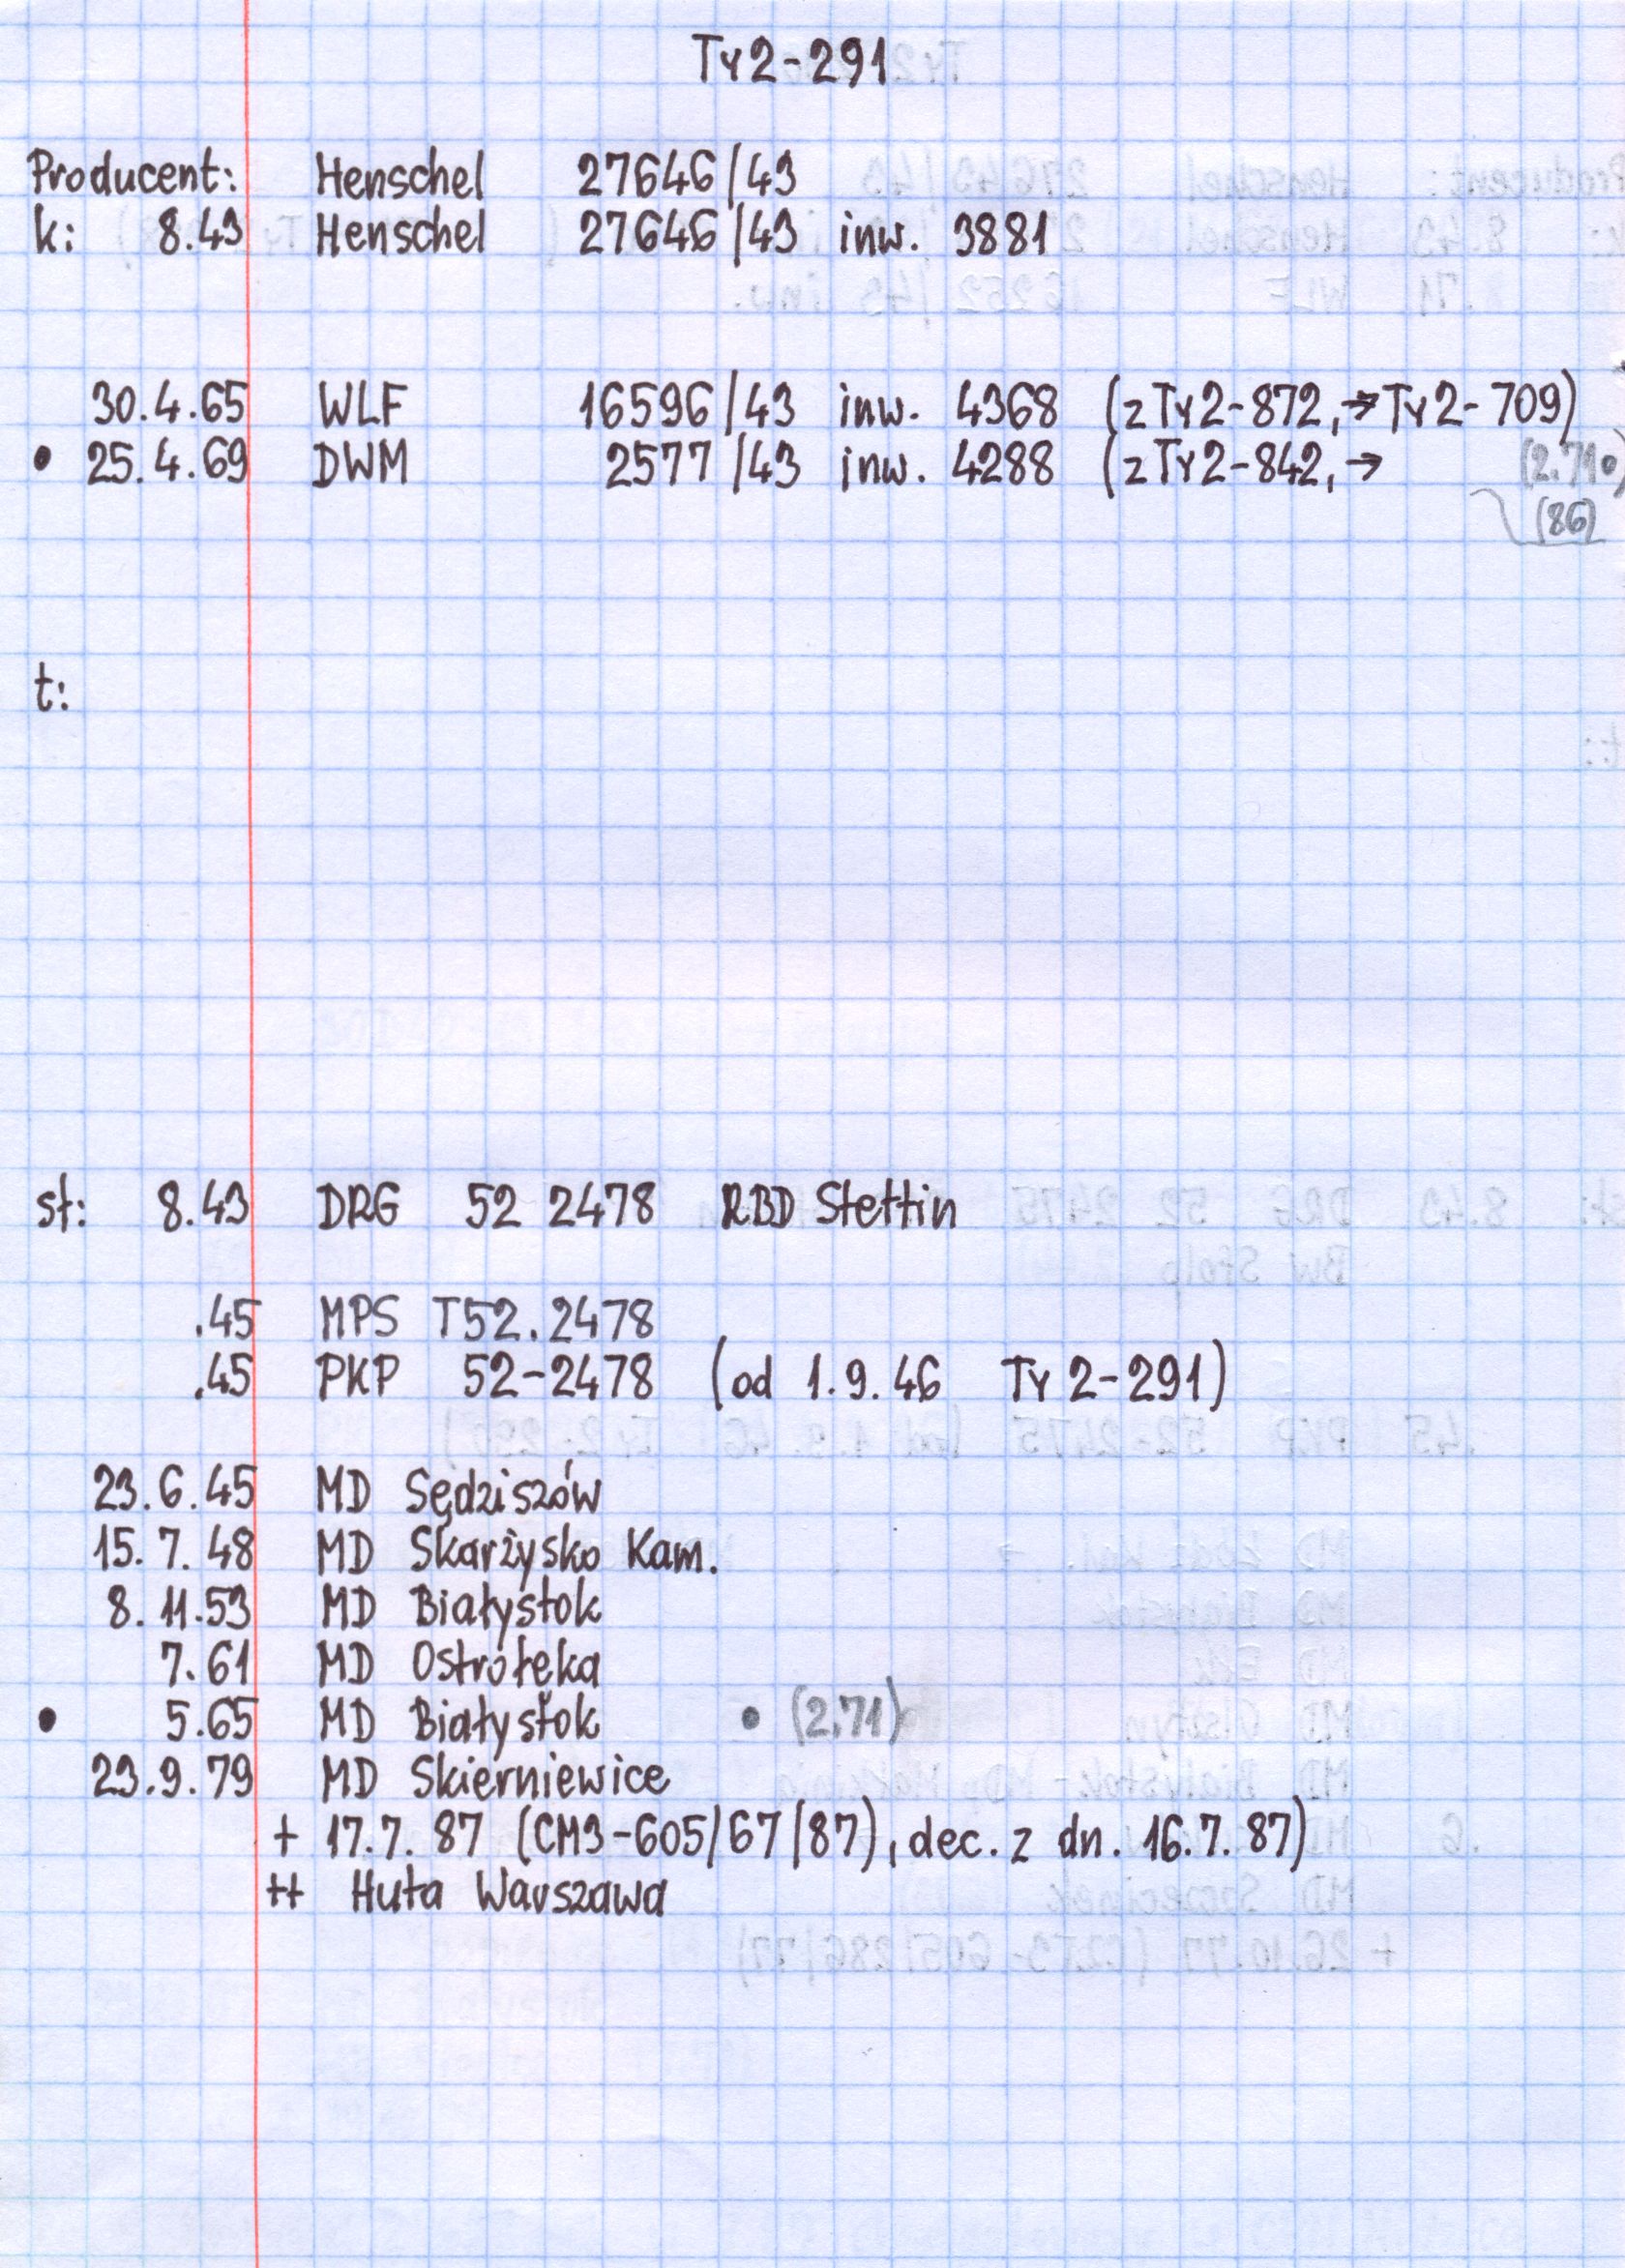 Ty2-291
Producent: Henschel 27646/43
k: 8.43 Henschel 27646/43 inw. 3881
30.4.65 WLF 16596/43 inw. 4368 (z Ty2-872, → Ty2-709)
• 25.4.69 DWM 2577/43 inw. 4288 (z Ty2-842, → (2.71•)
(86)
t:
st: 8.43 DRG 52 2478 RBD Stettin
.45 MPS T52.2478
.45 PKP 52-2478 (od 1.9.46 Ty2-291)
23.6.45 MD Sędziszów
15.7.48 MD Skarżysko Kam.
8.11.53 MD Białystok
7.61 MD Ostrołęka
• 5.65 MD Białystok • (2.71)
23.9.79 MD Skierniewice
+ 17.7.87 (CM3-605/67/87), dec. z dn. 16.7.87)
++ Huta Warszawa